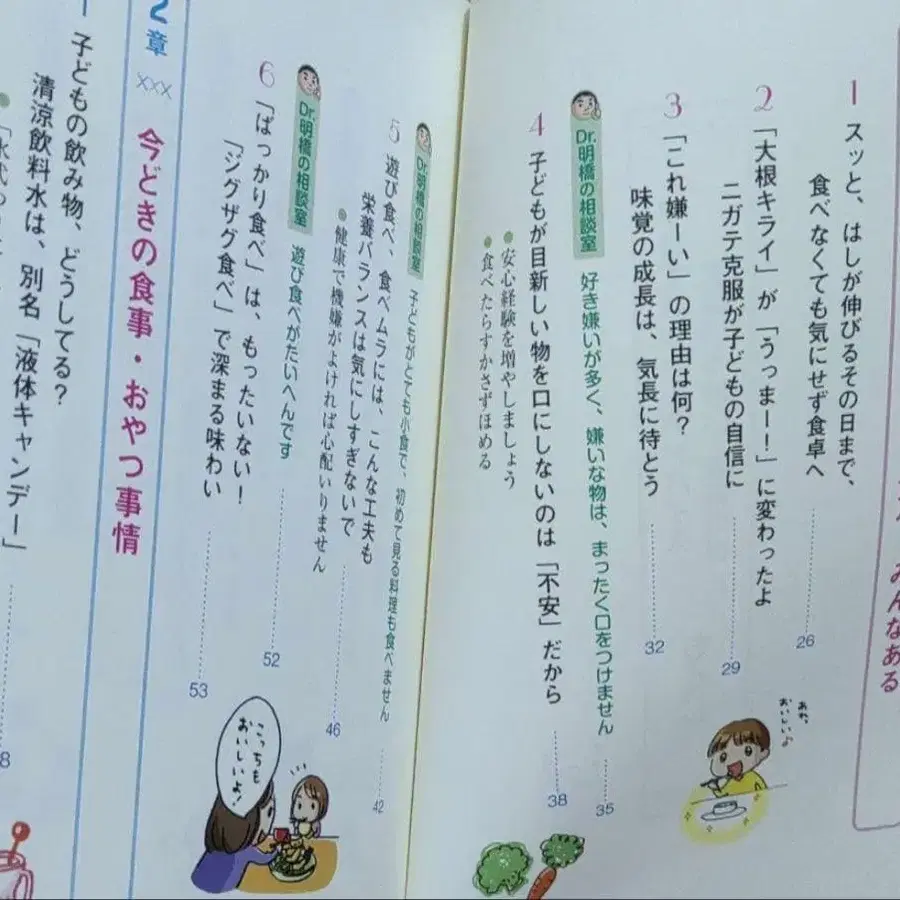 みんなある
1 スッと、はしが伸びるその日まで、
食べなくても気にせず食卓へ
26
2 「大根キライ」が「うっまー!」に変わったよ
ニガテ克服が子どもの自信に
29
3 「これ嫌ーい」の理由は何?
味覚の成長は、気長に待とう
32
Dr.明橋の相談室 好き嫌いが多く、嫌いな物は、まったく口をつけません
35
4 子どもが目新しい物を口にしないのは「不安」だから
38
●安心経験を増やしましょう
●食べたらすかさずほめる
あれ、
おいしい♪
Dr.明橋の相談室 子どもがとても小食で、初めて見る料理も食べません
42
5 遊び食べ、食べムラには、こんな工夫も
栄養バランスは気にしすぎないで
46
●健康で機嫌がよければ心配いりません
Dr.明橋の相談室 遊び食べがたいへんです
52
6 「ばっかり食べ」は、もったいない!
「ジグザグ食べ」で深まる味わい
53
こっちも
おいしいよ!
2章 ××× 今どきの食事・おやつ事情
1 子どもの飲み物、どうしてる?
清涼飲料水は、別名「液体キャンデー」
8